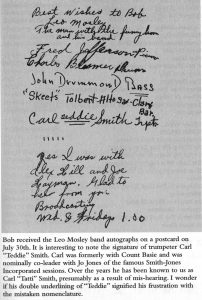 Best Wishes to Bob
Leo Mosley
The man with the funny horn
and his band
Fred Jefferson-Piano
Charles Bloomer Drums
John Drummond Bass
"Skeets" Tolbert-Alto Sax-Clary
Carl Teddie Smith Trpt
Yes I was with
Alex Hill and Joe
Hayman. Glad to
hear from you
Broadcasting
Wed. & Friday 1.00
Bob received the Leo Mosley band autographs on a postcard on
July 30th. It is interesting to note the signature of trumpeter Carl
"Teddie" Smith. Carl was formerly with Count Basie and was
nominally co-leader with Jo Jones of the famous Smith-Jones
Incorporated sessions. Over the years he has been known to us as
Carl "Tatti" Smith, presumably as a result of mis-hearing. I wonder
if his double underlining of "Teddie" signified his frustration with
the mistaken nomenclature.